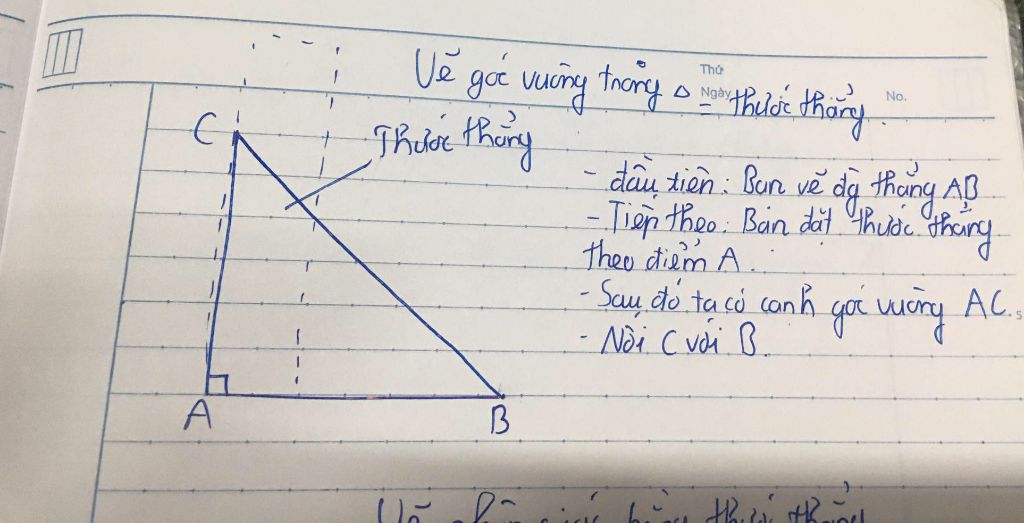 Vẽ góc vuông trong △ = thước thẳng.
Thứ
Ngày
No.
C
Thước thẳng
- đầu tiên: Bạn vẽ đg thẳng AB
- Tiếp theo: Bạn đặt thước thẳng
theo điểm A.
- Sau đó ta có cạnh góc vuông AC.
- Nối C với B.
A
B
thước thẳng